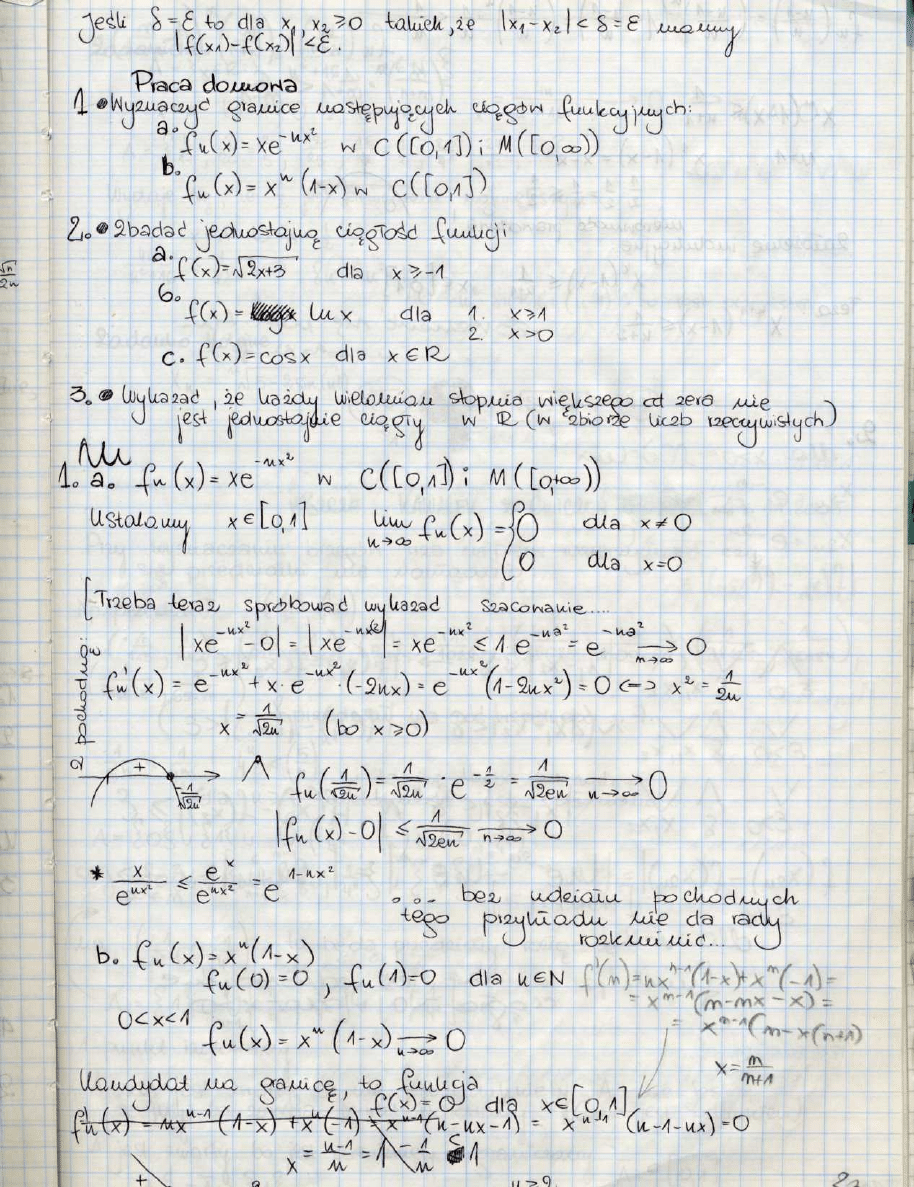 Jeśli δ=ε to dla x₁, x₂ ≥ 0 takich, że |x₁-x₂| < δ = ε mamy
|f(x₁)-f(x₂)| < ε.
Praca domowa
1 • Wyznaczyć granice następujących ciągów funkcyjnych:
a.
fn(x) = xe^{-nx²} w C([0,1]) i M([0,∞))
b.
fn(x) = xⁿ(1-x) w C([0,1])
2. • Zbadać jednostajną ciągłość funkcji
a.
f(x)=√(2x+3) dla x ≥ -1
b.
f(x) = ln x dla 1. x≥1
2. x>0
c. f(x)=cosx dla x∈R
3. • Wykazać, że każdy wielomian stopnia większego od zera nie
jest jednostajnie ciągły w R (w zbiorze liczb rzeczywistych)
√n/2n
1. a. fn(x) = xe^{-nx²} w C([0,1]) i M([0,+∞))
Ustalamy x∈[0,1] lim n→∞ fn(x) = { 0 dla x≠0
0 dla x=0
[Trzeba teraz spróbować wykazać szacowanie....
|xe^{-nx²}-0| = |xe^{-nx²}| = xe^{-nx²} ≤ 1 e^{-na²} = e^{-na²} → n→∞ 0
Z pochodną:
fn'(x) = e^{-nx²} + x·e^{-nx²}·(-2nx) = e^{-nx²}(1-2nx²) = 0 <=> x² = 1/2n
x = 1/√2n (bo x≥0)
+ 1/√2n
fn(1/√2n) = 1/√2n · e^{-1/2} = 1/√2en → n→∞ 0
|fn(x)-0| ≤ 1/√2en → n→∞ 0
* x/e^{nx²} ≤ e^x/e^{nx²} = e^{1-nx²}
... bez udziału pochodnych
tego przykładu nie da rady
rozkminić...
b. fn(x) = xⁿ(1-x)
fn(0)=0, fn(1)=0 dla n∈N
f'(n) = nx^{n-1}(1-x)+xⁿ(-1) =
= x^{n-1}(n-nx-x) =
= x^{n-1}(n-x(n+1)
x = n/n+1
0<x<1
fn(x) = xⁿ(1-x) → n→∞ 0
Kandydat na granicę, to funkcja
f(x)=0 dla x∈[0,1]
fn'(x) = nx^{n-1}(1-x) + xⁿ(-1) = x^{n-1}(n-nx-1) = x^{n-1}(n-1-nx)=0
x = n-1/n = 1 - 1/n ≤ 1
+